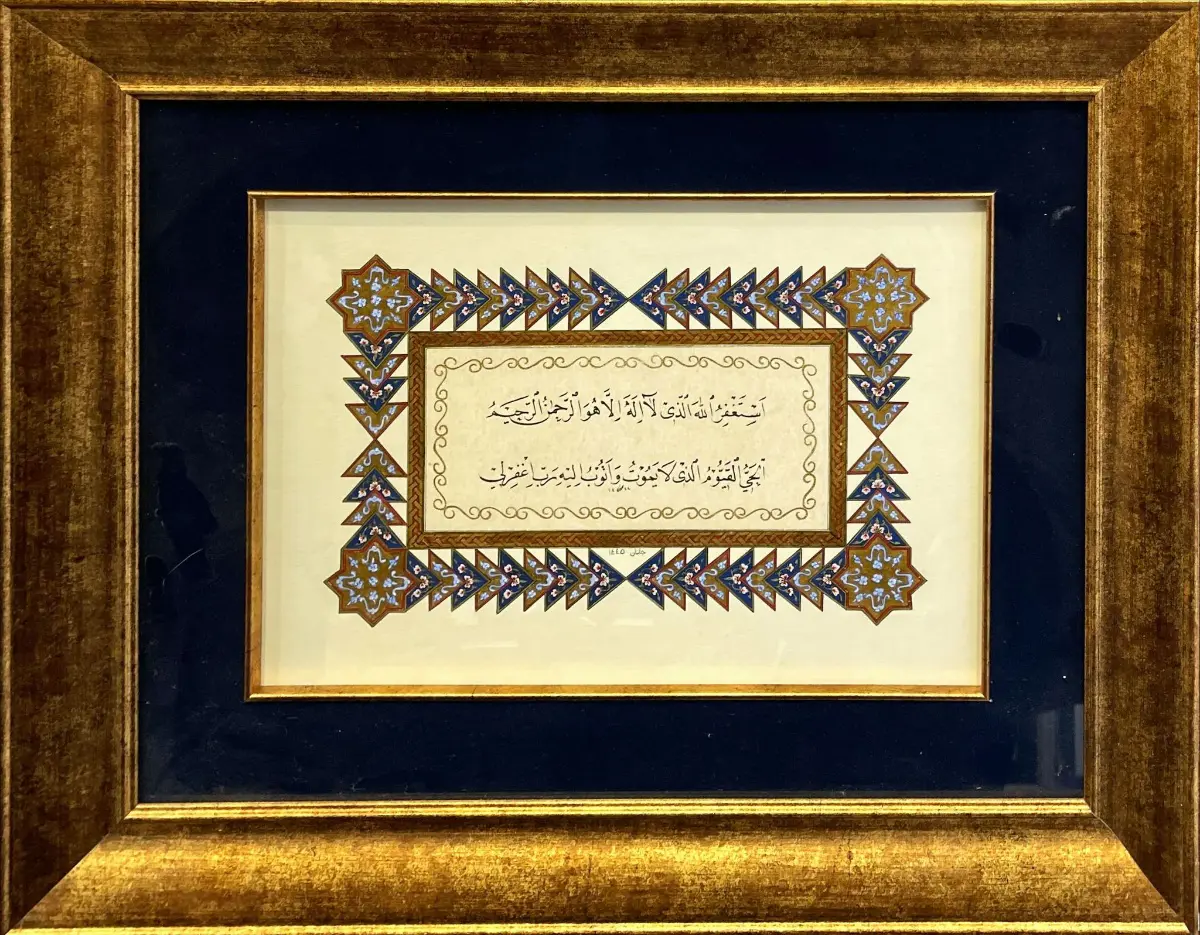 اَسْتَغْفِرُ اللهَ الَّذِي لَآ اِلَهَ اِلَّا هُوَ الرَّحْمٰنُ الرَّحِيْمُ
اَلْحَيُّ الْقَيُّوْمُ الَّذِي لَا يَمُوْتُ وَاَتُوْبُ اِلَيْهِ رَبِّ اغْفِرْلِيْ
١٤٤٥